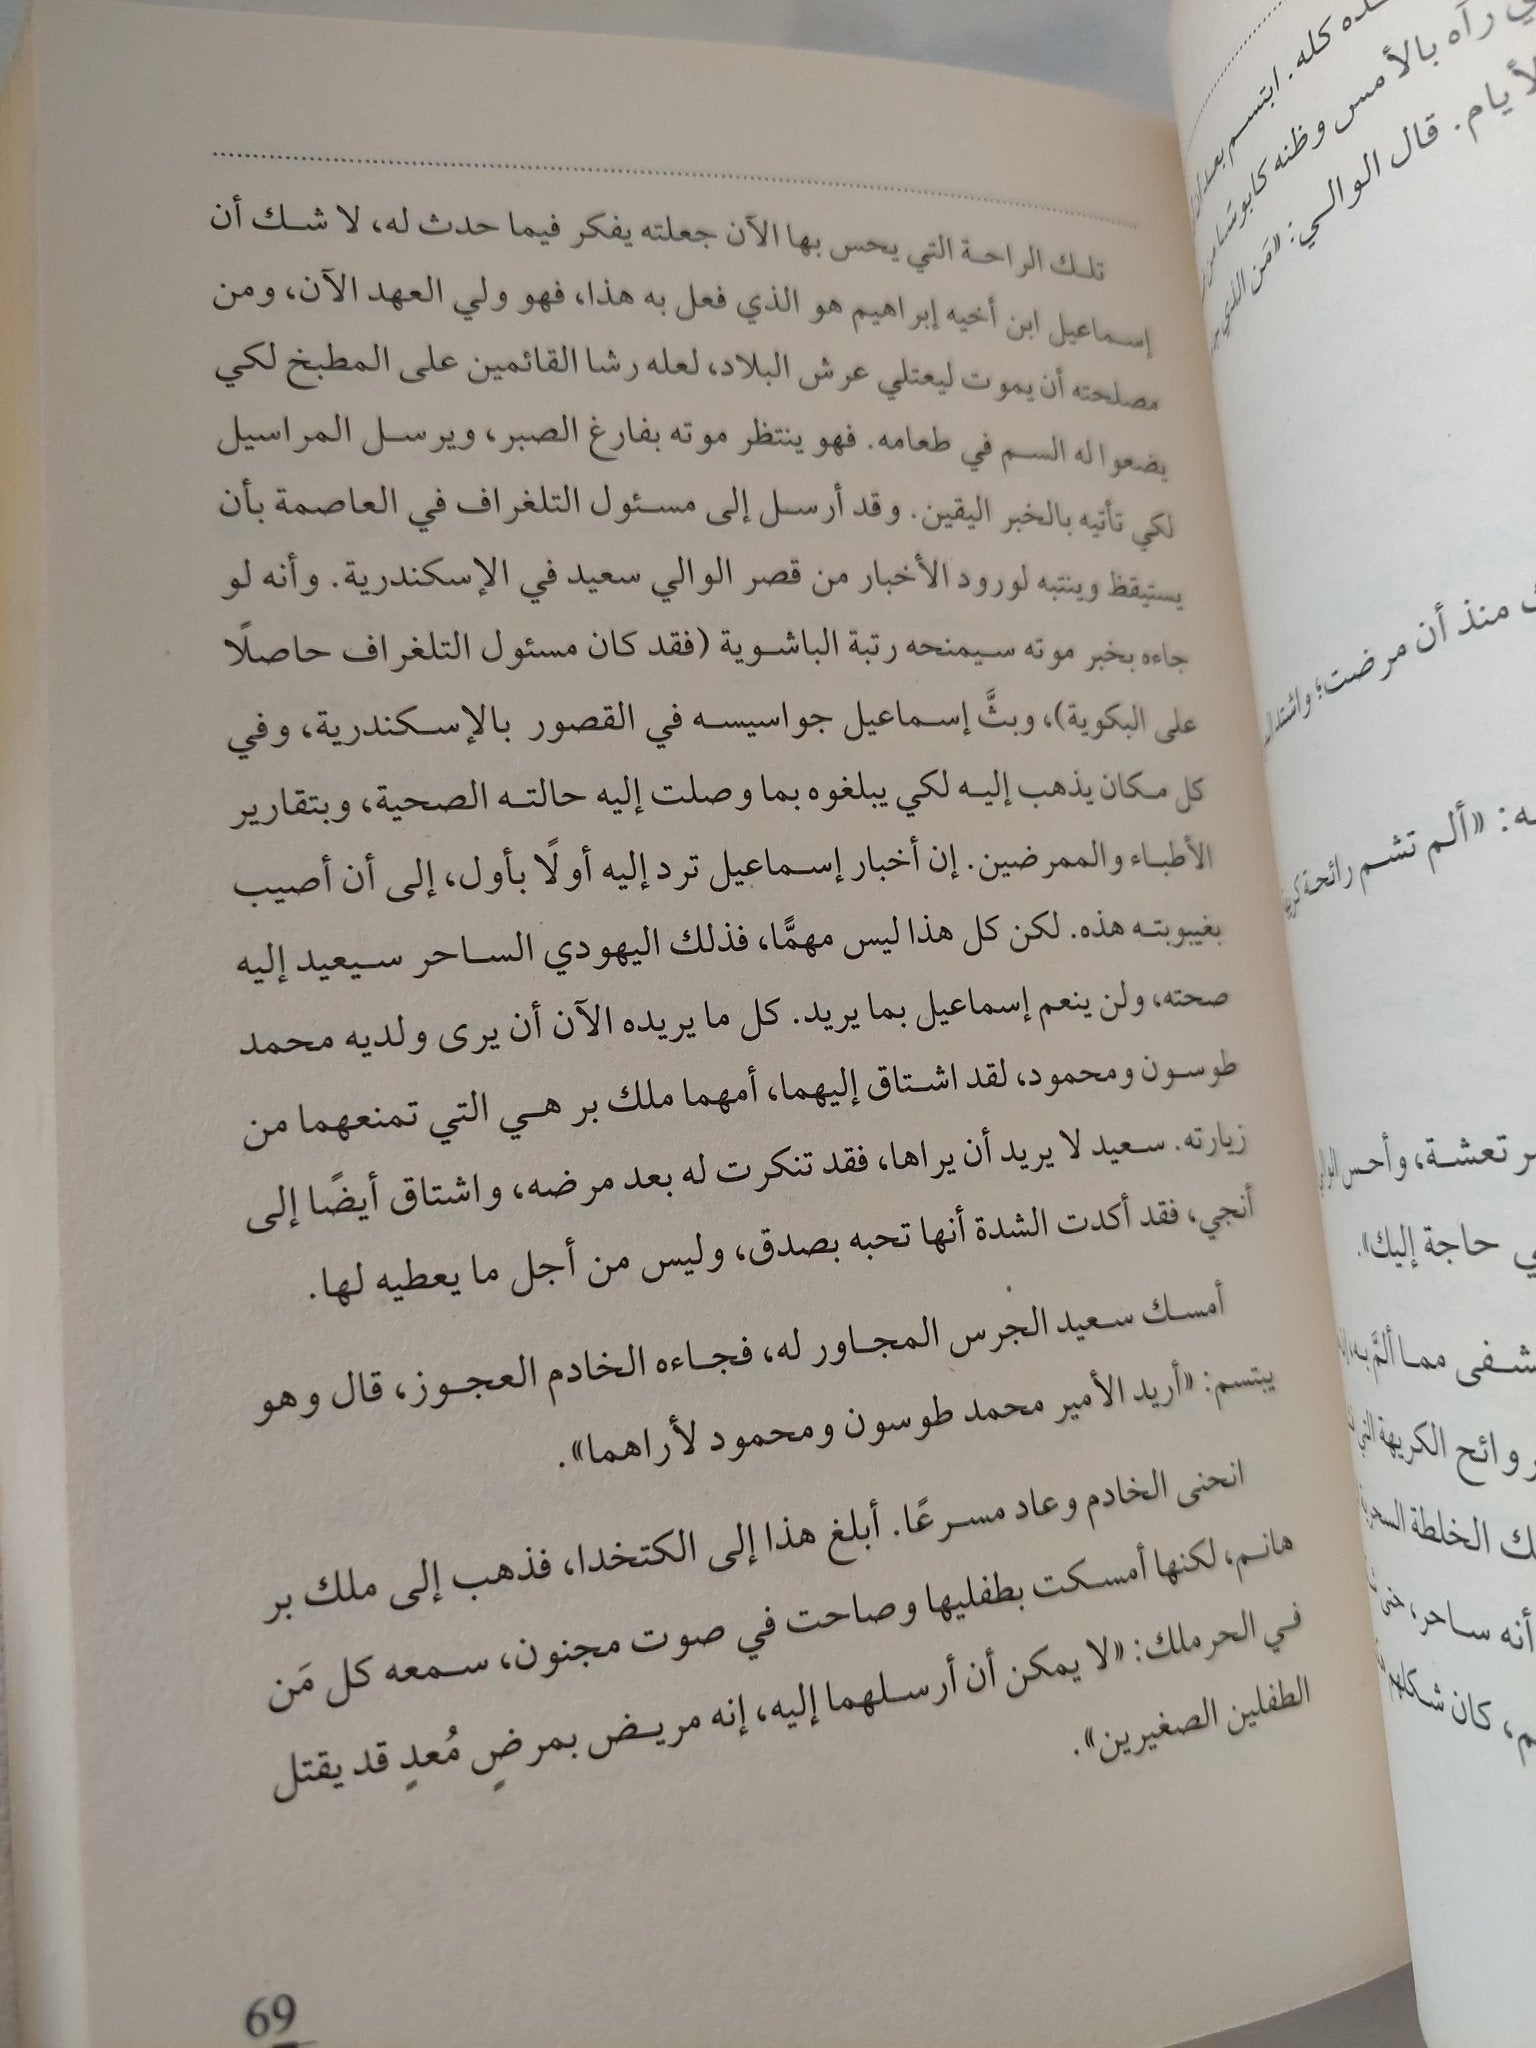 تلك الراحة التي يحس بها الآن جعلته يفكر فيما حدث له، لا شك أن
إسماعيل ابن أخيه إبراهيم هو الذي فعل به هذا، فهو ولي العهد الآن، ومن
مصلحته أن يموت ليعتلي عرش البلاد، لعله رشا القائمين على المطبخ لكي
يضعوا له السم في طعامه. فهو ينتظر موته بفارغ الصبر، ويرسل المراسيل
لكي تأتيه بالخبر اليقين. وقد أرسل إلى مسئول التلغراف في العاصمة بأن
يستيقظ وينتبه لورود الأخبار من قصر الوالي سعيد في الإسكندرية. وأنه لو
جاءه بخبر موته سيمنحه رتبة الباشوية (فقد كان مسئول التلغراف حاصلًا
على البكوية)، وبثَّ إسماعيل جواسيسه في القصور بالإسكندرية، وفي
كل مكان يذهب إليه لكي يبلغوه بما وصلت إليه حالته الصحية، وبتقارير
الأطباء والممرضين. إن أخبار إسماعيل ترد إليه أولًا بأول، إلى أن أصيب
بغيبوبته هذه. لكن كل هذا ليس مهمًّا، فذلك اليهودي الساحر سيعيد إليه
صحته، ولن ينعم إسماعيل بما يريد. كل ما يريده الآن أن يرى ولديه محمد
طوسون ومحمود، لقد اشتاق إليهما، أمهما ملك بر هي التي تمنعهما من
زيارته. سعيد لا يريد أن يراها، فقد تنكرت له بعد مرضه، واشتاق أيضًا إلى
أنجي، فقد أكدت الشدة أنها تحبه بصدق، وليس من أجل ما يعطيه لها.
أمسك سعيد الجرس المجاور له، فجاءه الخادم العجوز، قال وهو
يبتسم: «أريد الأمير محمد طوسون ومحمود لأراهما».
انحنى الخادم وعاد مسرعًا. أبلغ هذا إلى الكتخدا، فذهب إلى ملك بر
هانم، لكنها أمسكت بطفليها وصاحت في صوت مجنون، سمعه كل مَن
في الحرملك: «لا يمكن أن أرسلهما إليه، إنه مريض بمرضٍ مُعدٍ قد يقتل
الطفلين الصغيرين».
69
كله. ابتسم بعد أن
رآه بالأمس وظنه كابوسًا من
قال الوالي: «مَن الذي
منذ أن مرضت؛ واشتد
«ألم تشم رائحة
تعشة، وأحس
حاجة إليك».
مما ألمَّ به،
الكريهة التي
الخلطة
أنه ساحر، حتى
كان شكلهم